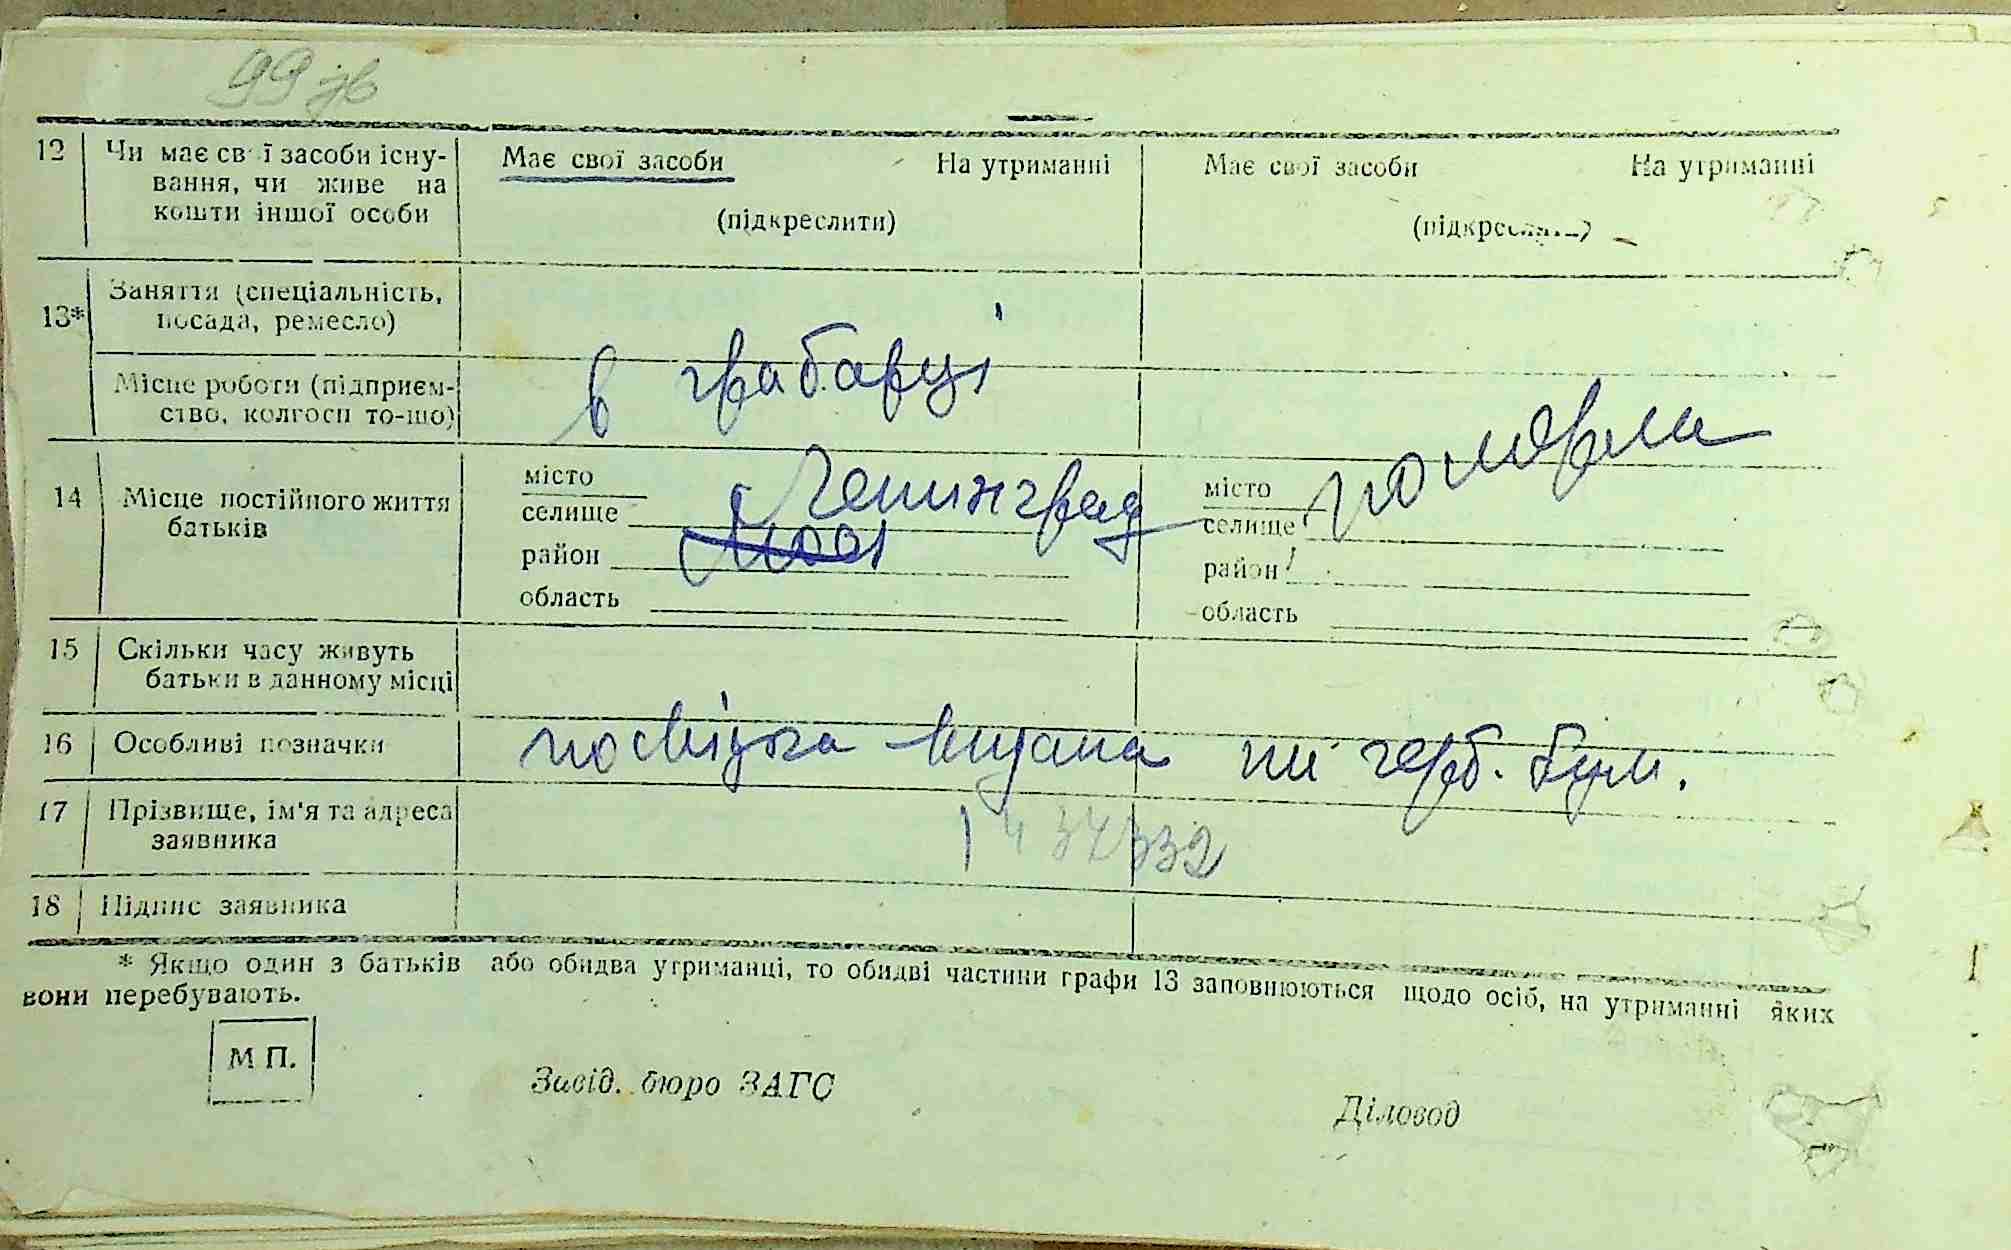 99 зв
12 Чи має свої засоби існу-
вання, чи живе на
кошти іншої особи
Має свої засоби На утриманні
(підкреслити)
Має свої засоби На утриманні
(підкреслити)
13* Заняття (спеціальність,
посада, ремесло)
Місце роботи (підприєм-
ство, колгосп то-що)
в грабарці
14 Місце постійного життя
батьків
місто
селище
район
область
Ленинград
місто
селище
район
область
померла
15 Скільки часу живуть
батьки в данному місці
16 Особливі позначки
посвідка видана на герб. бум.
17 Прізвище, ім'я та адреса
заявника
1434332
18 Підпис заявника
* Якщо один з батьків або обидва утриманці, то обидві частини графи 13 заповнюються щодо осіб, на утриманні яких
вони перебувають.
М П.
Завід. бюро ЗАГС
Діловод